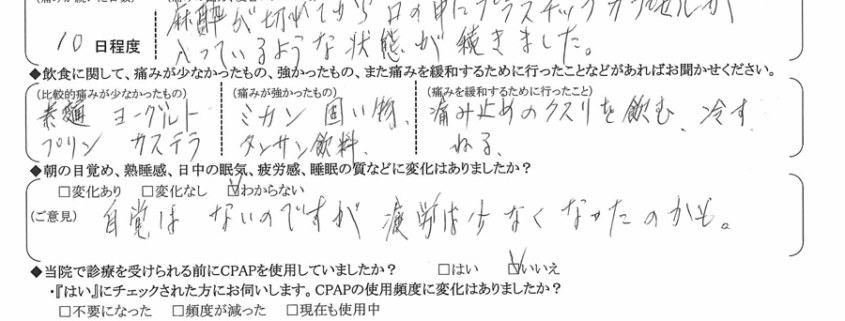 麻酔が切れてから口の中にプラスチックカプセルが
10日程度
入っているような状態が続きました。
◆飲食に関して、痛みが少なかったもの、強かったもの、また痛みを緩和するために行ったことなどがあればお聞かせください。
(比較的痛みが少なかったもの) (痛みが強かったもの) (痛みを緩和するために行ったこと)
素麺 ヨーグルト ミカン 固い物、 痛み止めのクスリを飲む、冷す
プリン カステラ タンサン飲料、 ねる、
◆朝の目覚め、熟睡感、日中の眠気、疲労感、睡眠の質などに変化はありましたか?
□変化あり □変化なし ☑わからない
(ご意見) 自覚は ないのですが 疲労は少なくなったのかも。
◆当院で診療を受けられる前にCPAPを使用していましたか? □はい ☑いいえ
・『はい』にチェックされた方にお伺いします。CPAPの使用頻度に変化はありましたか?
□不要になった □頻度が減った □現在も使用中